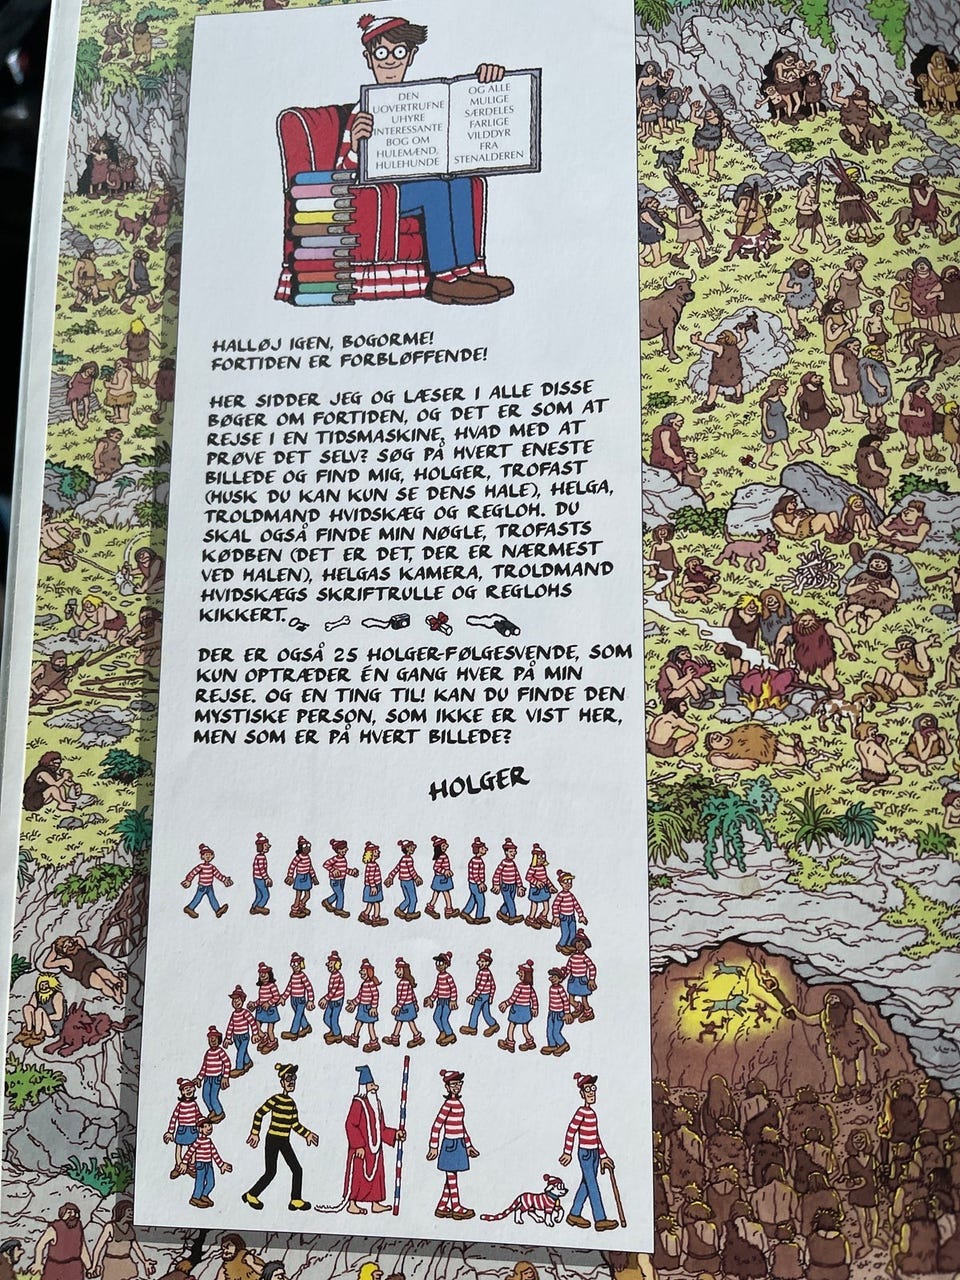 DEN
UOVERTRUFNE
UHYRE
INTERESSANTE
BOG OM
HULEMÆND,
HULEHUNDE
OG ALLE
MULIGE
SÆRDELES
FARLIGE
VILDDYR
FRA
STENALDEREN
HALLØJ IGEN, BOGORME!
FORTIDEN ER FORBLØFFENDE!
HER SIDDER JEG OG LÆSER I ALLE DISSE
BØGER OM FORTIDEN, OG DET ER SOM AT
REJSE I EN TIDSMASKINE, HVAD MED AT
PRØVE DET SELV? SØG PÅ HVERT ENESTE
BILLEDE OG FIND MIG, HOLGER, TROFAST
(HUSK DU KAN KUN SE DENS HALE), HELGA,
TROLDMAND HVIDSKÆG OG REGLOH. DU
SKAL OGSÅ FINDE MIN NØGLE, TROFASTS
KØDBEN (DET ER DET, DER ER NÆRMEST
VED HALEN), HELGAS KAMERA, TROLDMAND
HVIDSKÆGS SKRIFTRULLE OG REGLOHS
KIKKERT.
DER ER OGSÅ 25 HOLGER-FØLGESVENDE, SOM
KUN OPTRÆDER ÉN GANG HVER PÅ MIN
REJSE. OG EN TING TIL! KAN DU FINDE DEN
MYSTISKE PERSON, SOM IKKE ER VIST HER,
MEN SOM ER PÅ HVERT BILLEDE?
HOLGER